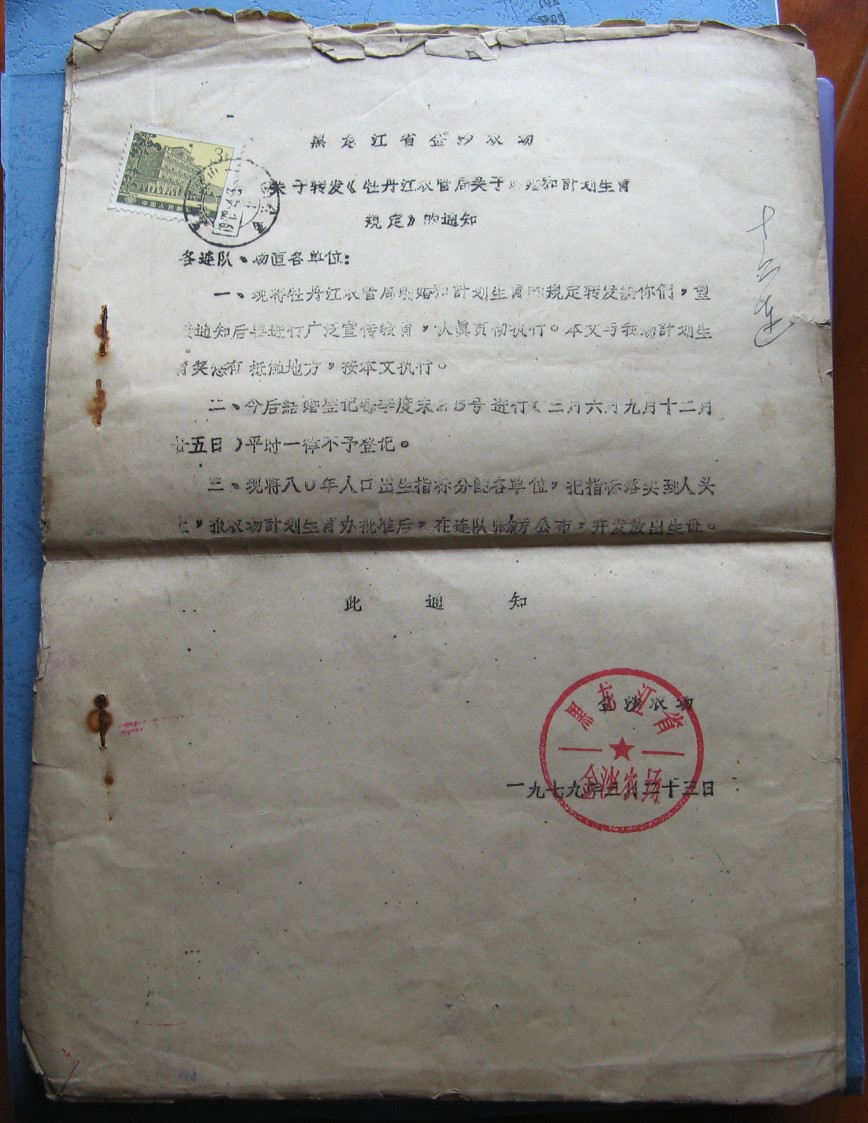 黑龙江省金沙农场
关于转发《牡丹江农管局关于晚婚和計划生育
规定》的通知
各连队、场直各单位：
一、现将牡丹江农管局晚婚和計划生育的规定转发給你们，望
接通知后要进行广泛宣传教育，认真贯彻执行。本文与我场計划生
育奖惩有抵触地方，按本文执行。
二、今后結婚登记每季度末25号进行（三月六月九月十二月
廿五日）平时一律不予登记。
三、现将八〇年人口出生指标分配各单位，把指标落实到人头
上，报农场計划生育办批准后，在连队张榜公布，并发放出生证。
此通知
金沙农场
一九七九年三月二十三日
黑龙江省
金沙农场
十六连
中国人民邮